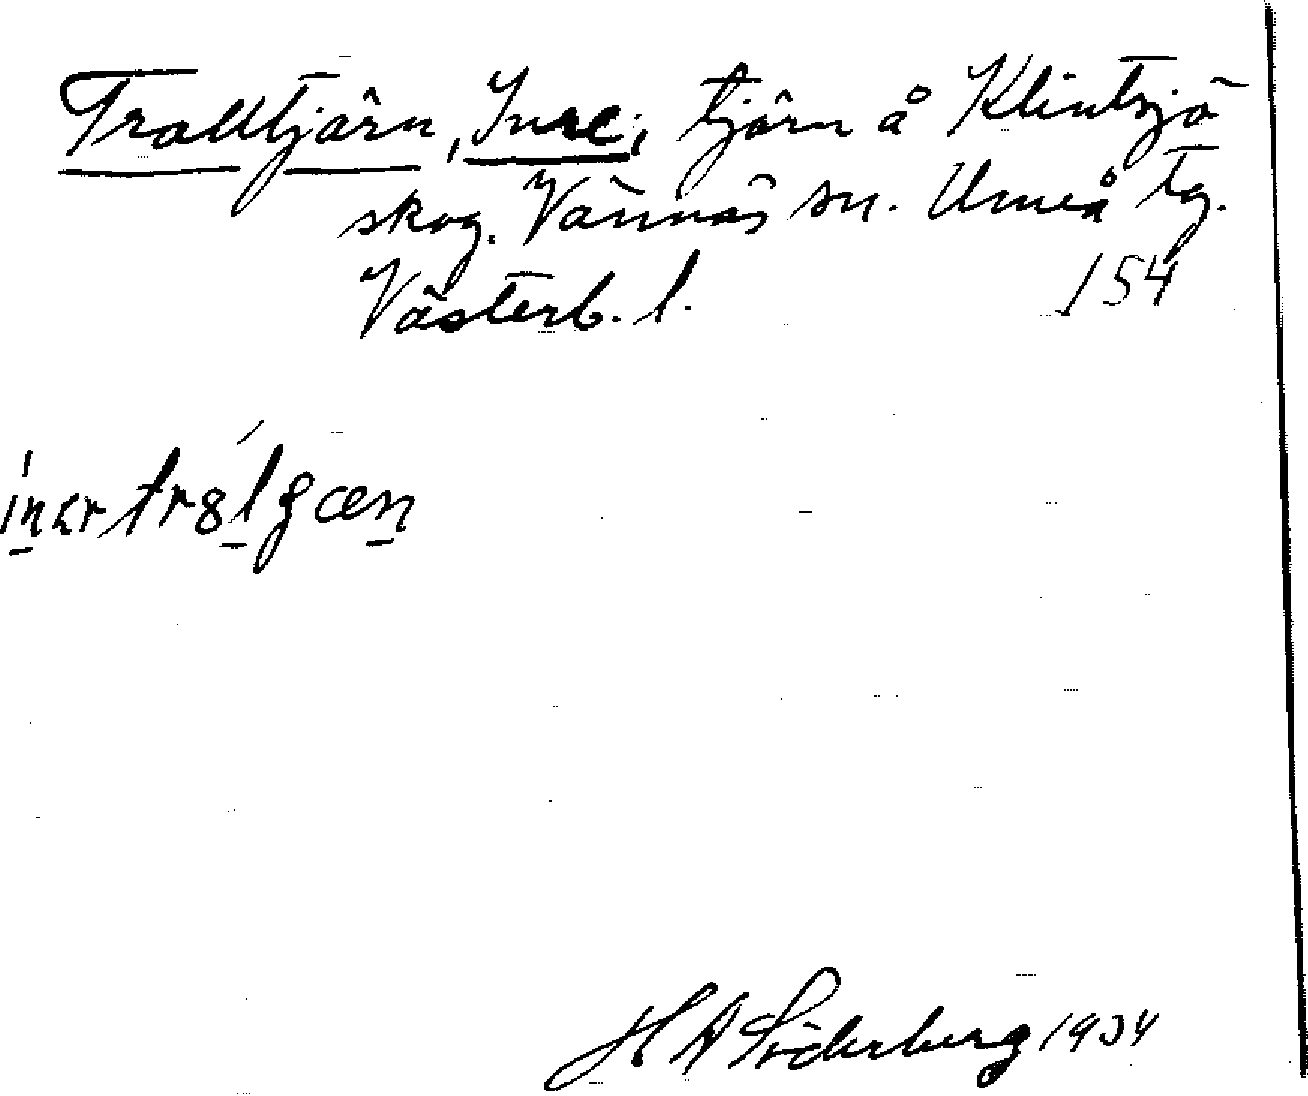 Tralltjärn, Inre; tjärn å Klintsjö
skog. Vännäs sn. Umeå tg.
Västerb. l. 154
H A Söderberg 1934